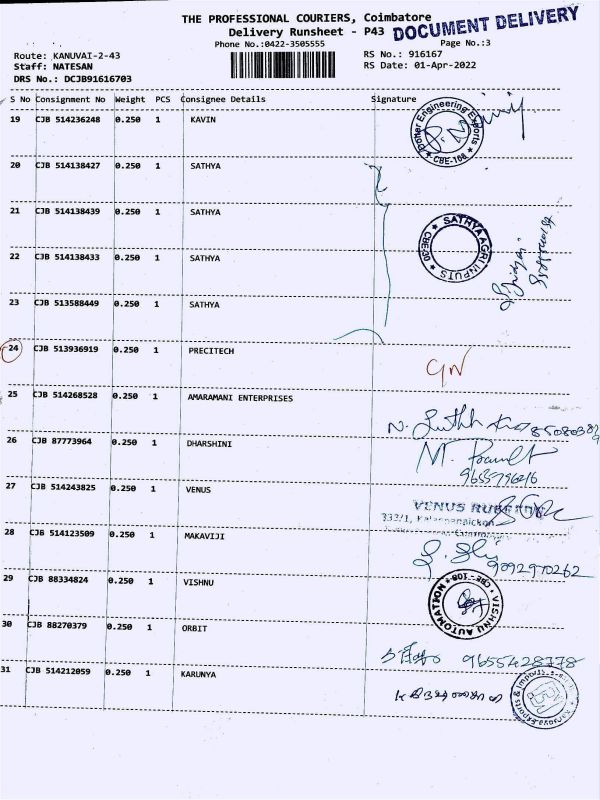 THE PROFESSIONAL COURIERS, Coimbatore
Delivery Runsheet - P43
DOCUMENT DELIVERY
Phone No.:0422-3505555
Page No.:3
Route: KANUVAI-2-43
RS No.: 916167
Staff: NATESAN
RS Date: 01-Apr-2022
DRS No.: DCJB91616703
S No Consignment No Weight PCS Consignee Details Signature
19 CJB 514236248 0.250 1 KAVIN
Engineering Exports
CBE-108
20 CJB 514138427 0.250 1 SATHYA
21 CJB 514138439 0.250 1 SATHYA
SATHYA AGRI INPUTS
22 CJB 514138433 0.250 1 SATHYA
23 CJB 513588449 0.250 1 SATHYA
24 CJB 513936919 0.250 1 PRECITECH
25 CJB 514268528 0.250 1 AMARAMANI ENTERPRISES
26 CJB 87773964 0.250 1 DHARSHINI
27 CJB 514243825 0.250 1 VENUS
VENUS
333/1,
28 CJB 514123509 0.250 1 MAKAVIJI
9092970262
29 CJB 88334824 0.250 1 VISHNU
VISHNU AUTOMATION
30 CJB 88270379 0.250 1 ORBIT
9655428778
31 CJB 514212059 0.250 1 KARUNYA